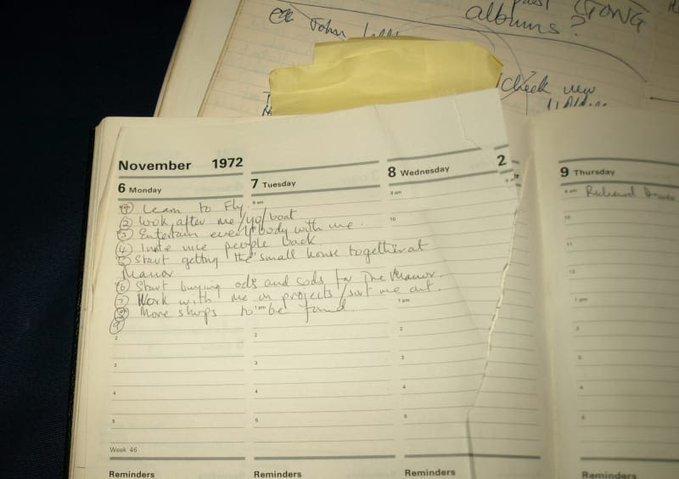 John
albums?
GONG
check new
November 1972
6 Monday
7 Tuesday
8 Wednesday
2
9 Thursday
① Learn to Fly.
② Look after me/yo/boat
③ Entertain everybody with me.
④ Invite nice people back
⑤ Start getting the small house together at
Manor
⑥ Start buying ods and sods for The Manor.
⑦ Work with me on projects / sort me out.
⑧ More shops to be found
⑨
9 am
9 am
9 am
Richard
10
10
11
11
12
12
1 pm
1 pm
1 pm
1 pm
2
2
2
2
3
3
3
3
4
4
4
4
5
5
5
5
Week 46
Reminders
Reminders
Reminders
Reminders